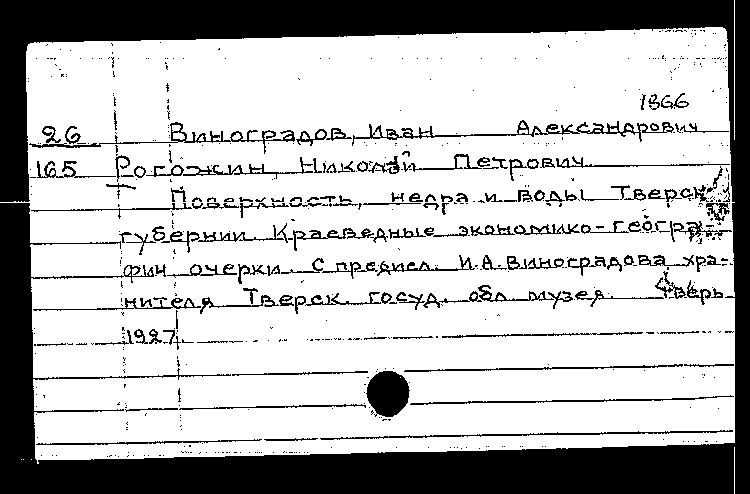 1866
26 Виноградов, Иван Александрович
165 Рогожин, Николай Петрович
Поверхность, недра и воды Тверск
губернии. Краеведные экономико-геогра-
фич очерки. С предисл. И.А.Виноградова хра-
нителя Тверск. госуд. обл. музея. Тверь
1927.